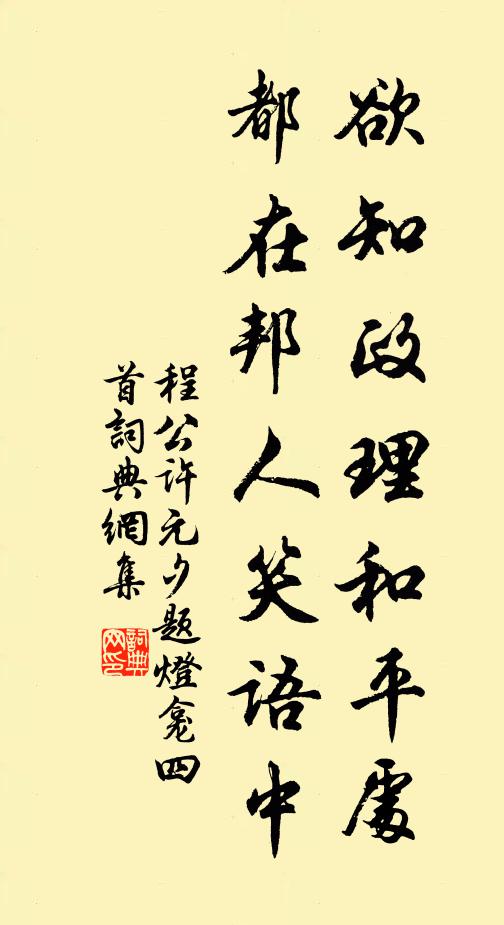 欲知政理和平處
都在邦人笑語中
程公許元夕題燈龕四
首詞典網集
詞典
网印